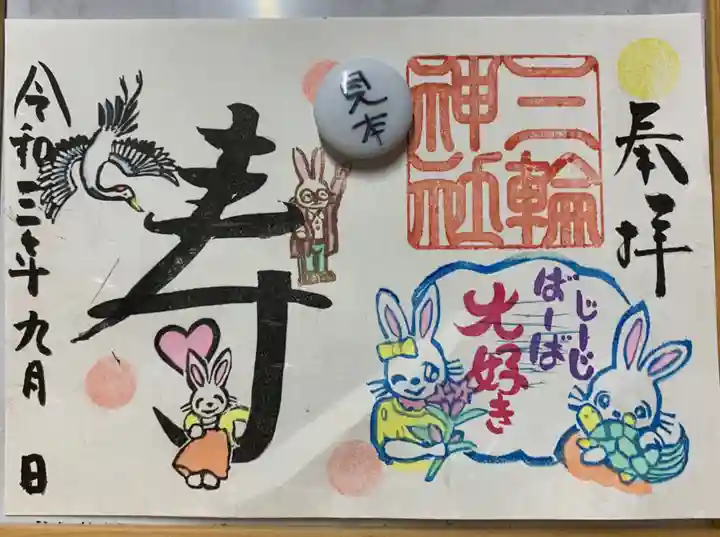 奉拝
三輪
神社
見本
じーじ
ばーば
大好き
寿
令和三年九月 日